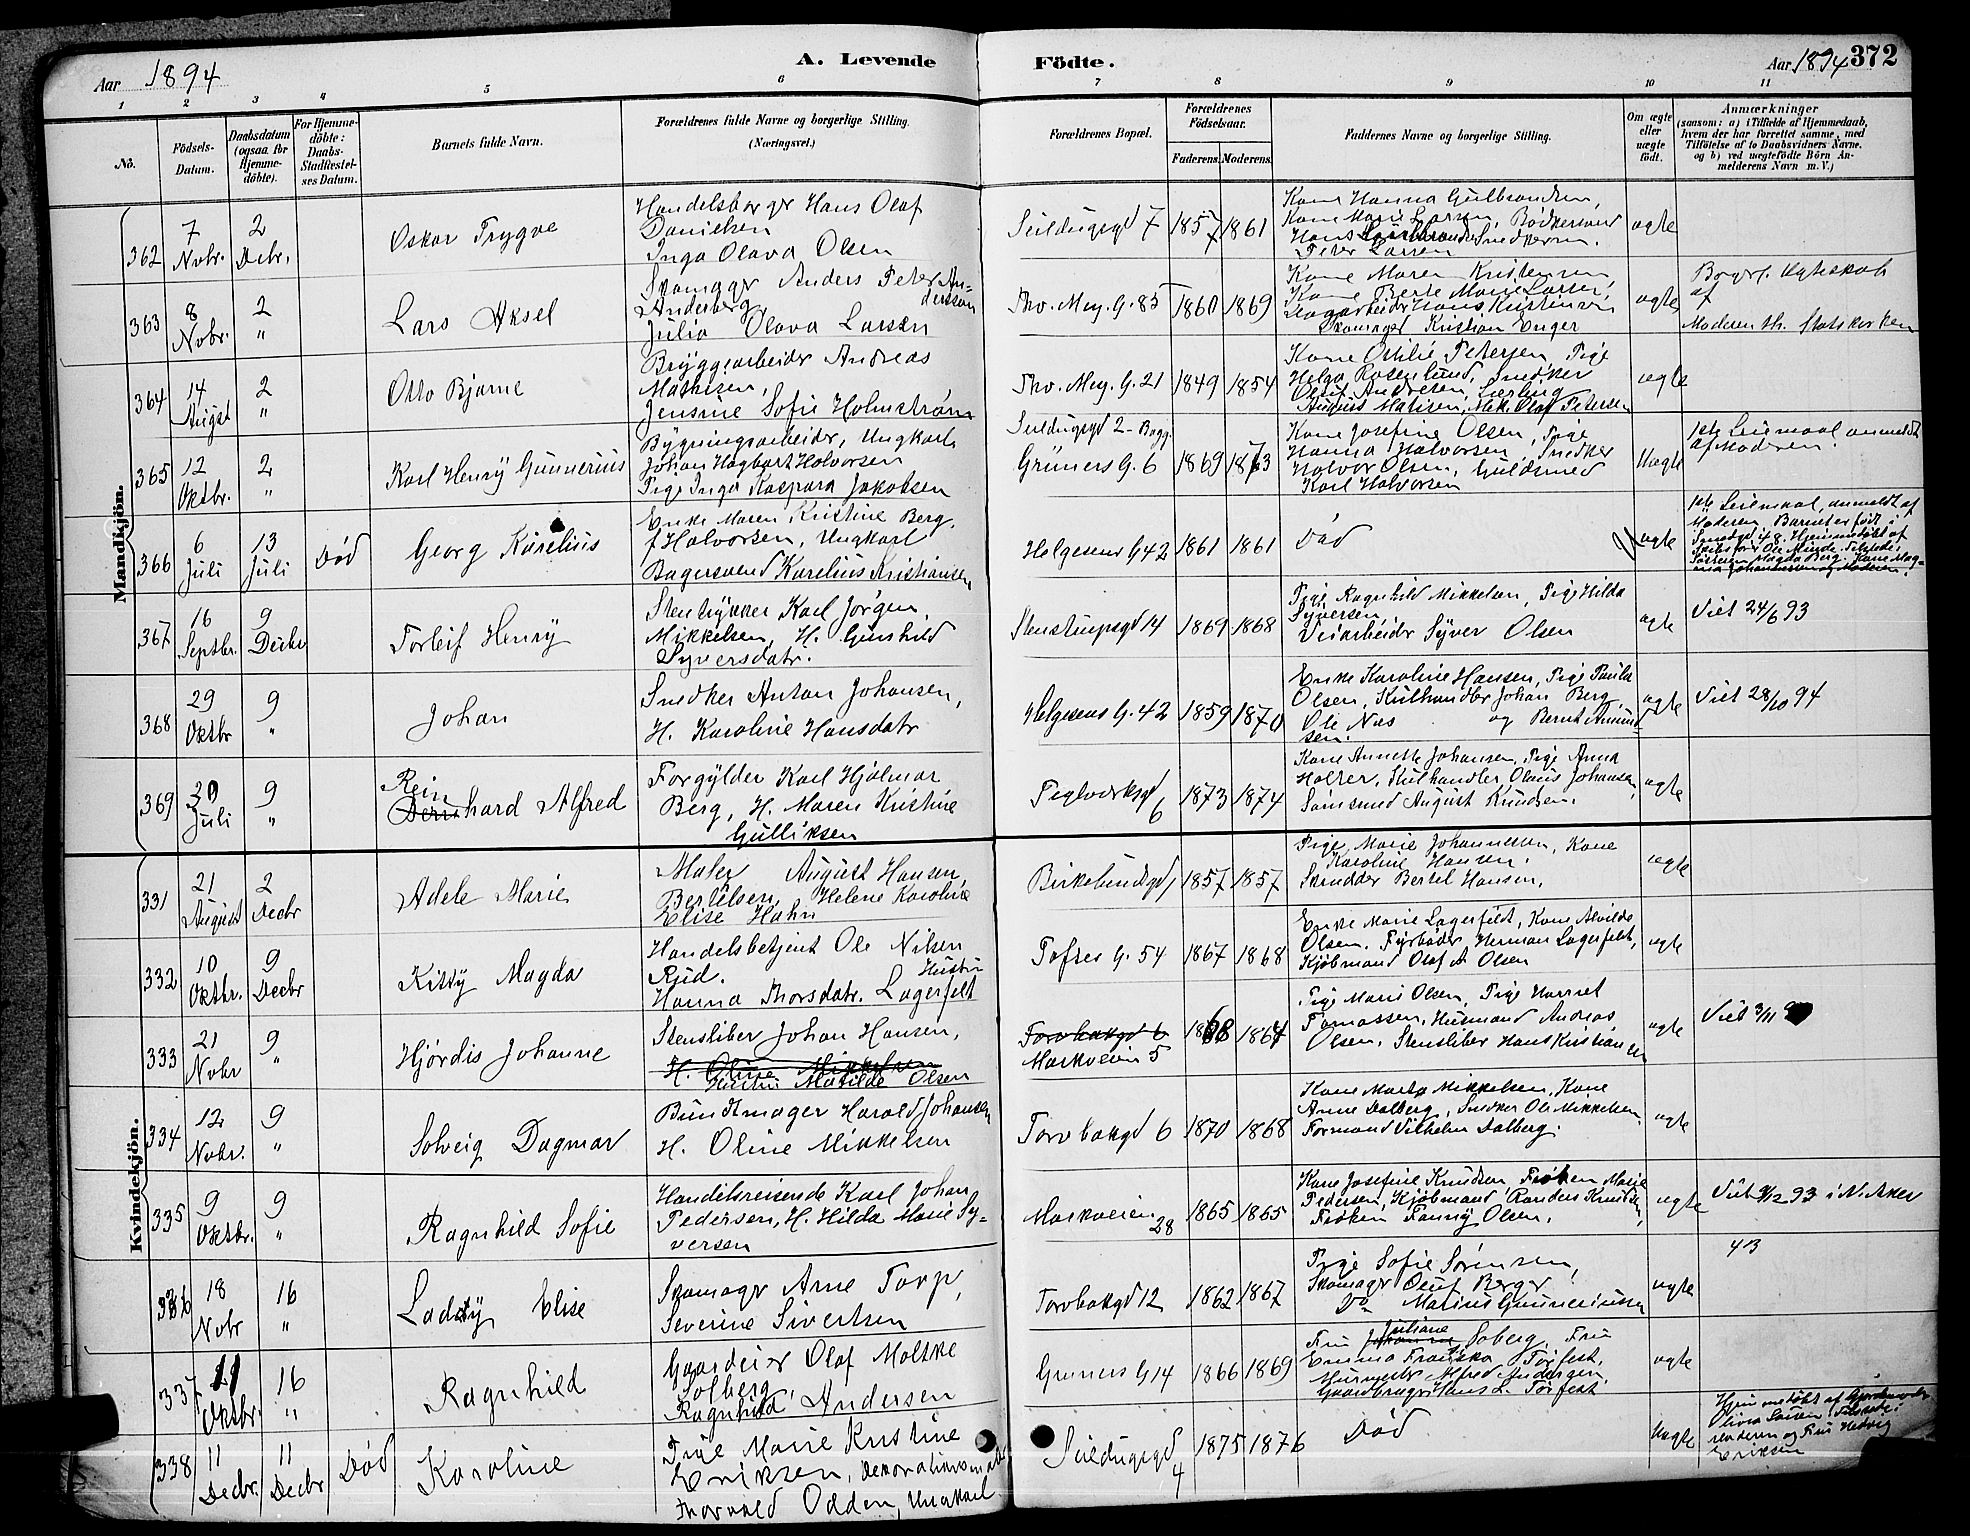 Aar 1894
A. Levende
Födte.
Aar 1894
372
1 2 3 4 5 6 7 8 9 10 11
No.
Födsels-
Datum.
Daabsdatum
(ogsaa for
Hjemme-
döbte).
For Hjemme-
döbte:
Daabs-
Stadfæstel-
ses Datum.
Barnets fulde Navn.
Forældrenes fulde Navne og borgerlige Stilling.
(Næringsvei.)
Forældrenes Bopæl.
Forældrenes
Födselsaar.
Faderens.
Moderens.
Faddernes Navne og borgerlige Stilling.
Om ægte
eller
uægte
födt.
Anmærkninger
(saasom: a) i Tilfælde af Hjemmedaab,
hvem der har forrettet samme, med
Tilföielse af to Daabsvidners Navne.
og b) ved uægtefödte Börn An-
melderens Navn m.V.)
Mandkjön.
362
7
Novbr.
2
Debr.
Oskar Trygve
Handelsborger Hans Olaf
Danielsen
Inga Olava Olsen
Seildugsgd 7
1857
1861
Kone Hanna Gulbrandsen,
Kone Marie Larsen, Bødkersvend
Hans Gulbrandsen Snedkersv.
Peter Larsen
ægte
363
8
Novbr.
2
"
Lars Aksel
Skomager Anders Peter An-
dersson
Anderberg
Julia Olava Larsen
Thv. Mey. G. 83
1860
1869
Kone Maren Kristensen
Kone Berte Marie Larsen,
Dagarbeider Hans Kristensen
Skomager Kristian Enger
ægte
af
Moderen th. Statskirken
364
14
Augst
2
"
Otto Bjarne
Bryggearbeider Andreas
Mathisen,
Jensine Sofie Holmstrøm
Thv. Mey. G. 21
1849
1854
Kone Ottilie Petersen, Pige
Helga Rosenlund, Snedker
Oluf Andresen, Lærling
August Matisen, Mek. Olaf Petersen
ægte
365
12
Oktbr.
2
"
Karl Henry Gunnerius
Bygningsarbeider, Ungkarl
Johan Hagbart Halvorsen
Pige Inga Kaspara Jakobsen
Seildugsgd 2 - Bagg.
Grüners G. 6
1869
1873
Kone Josefine Olsen, Pige
Hanna Halvorsen, Snedker
Halvor Olsen, Guldsmed
Karl Halvorsen
Uægte
1ste Leiemaal anmeldt
af Moderen
366
6
Juli
13
Juli
Død
Georg Karelius
Enke Maren Kristine Berg,
f Halvorsen, Ungkarl
Bagersvend Karelius Kristiansen
Helgesens G 42
1861
1861
Død
Uægte
1ste Leiemaal, anmeldt af
Moderen. Barnet er født i
367
16
Septbr.
9
Decbr
Torleif Henry
Stentrykker Karl Jørgen
Mikkelsen, H. Gunhild
Syversdatr.
Stenstrupsgd 14
1869
1868
Pige Ragnhild Mikkelsen, Pige Hilda
Syversen,
Veiarbeider Syver Olsen
ægte
Viet 24/6 93
368
29
Oktbr
9
"
Johan
Snedker Anton Johansen,
H. Karoline Hansdatr
Helgesens G. 42
1859
1870
Enke Karoline Hansen, Pige Paula
Olsen, Kulhandler Johan Berg,
Ole Næs og Bernt Amund-
sen.
ægte
Viet 28/10 94
369
20
Juli
9
"
Rein
Bernhard Alfred
Forgylder Karl Hjalmar
Berg, H. Maren Kristine
Gulliksen
Teglverksgd
6
1873
1874
Kone Annette Johansen, Pige Anna
Holter, Kulhandler Olaus Johansen,
Sømsmed August Knudsen.
ægte
Kvindekjön.
331
21
August
2
Decbr
Adele Marie
Maler August Hansen,
Bertelsen, Helene Karoline
Elise Hahn
Birkelundsgd 1
1857
1857
Pige Marie Johannesen, Kone
Karoline Hansen,
Skrædder Bertel Hansen.
ægte
332
10
Oktbr.
9
Decbr
Kitty Magda
Handelsbetjent Ole Nilsen
Rud. Hustru
Hanna Thorsdatr. Lagerfelt
Toftes G. 54
1867
1868
Enke Marie Lagerfeldt, Kone Alvilde
Olsen. Fyrbøder, Herman Lagerfelt,
Kjøbmand Olaf A Olsen
ægte
333
21
Nobr
9
"
Hjørdis Johanne
Stensliber Johan Hansen,
H. Oline Mikkelsen
Hustru Matilde Olsen
Torvbakgd 6
Markveien 5
1868
1864
Pige Marie Olsen, Pige Harriet
Tomassen, Husmand Andreas
Olsen, Stensliber Hans Kristiansen
ægte
Viet 3/11
334
12
Novbr.
9
"
Solveig Dagmar
Buntmager Harald Johansen
H. Oline Mikkelsen
Torvbakgd 6
1870
1868
Kone Marta Mikkelsen, Kone
Anne Dalberg, Snedker Ole Mikkelsen,
Formand Vilhelm Dalberg.
ægte
335
9
Oktbr.
9
"
Ragnhild Sofie
Handelsreisende Karl Johan
Pedersen, H. Hilda Marie Sy-
versen
Markveien
28
1865
1865
Kone Josefine Knudsen, Frøken Marie
Pedersen, Kjøbmand Randers Knudsen,
Frøken Fanny Olsen.
ægte
Viet 3/12 93 i N. Aker
336
18
Nobr
16
"
Laddy Elise
Skomager Arne Torp,
Severine Sivertsen
Torvbakgd 12
1862
1867
Pige Sofie Sørensen,
Skomager Oluf Berger
Do Matius Gunneriussen
ægte
4B
337
21
Oktbr.
16
"
Ragnhild
Gaardeier Olaf Moltke
Solberg,
Ragnhild Andersen
Gruners G 14
1866
1869
Juliane
Fru Johanne Soberg, Fru
Emma Franziska Torfest,
Murmester Alfred Andersen,
Gaardbruger Hans L. Torfest
ægte
338
11
Decbr.
11
Decbr
Død
Karoline
Pige Marie Kristine
Eriksen, Dekorationsmaler
Thorvald Odden, Ungkarl
Seildugsgd
4
1875
1876
Død
Uægte
Hjemmedøbt af Gjordemoder
Olivia Larsen Tilstede:
Moderen og Fru Hedvig
Eriksen